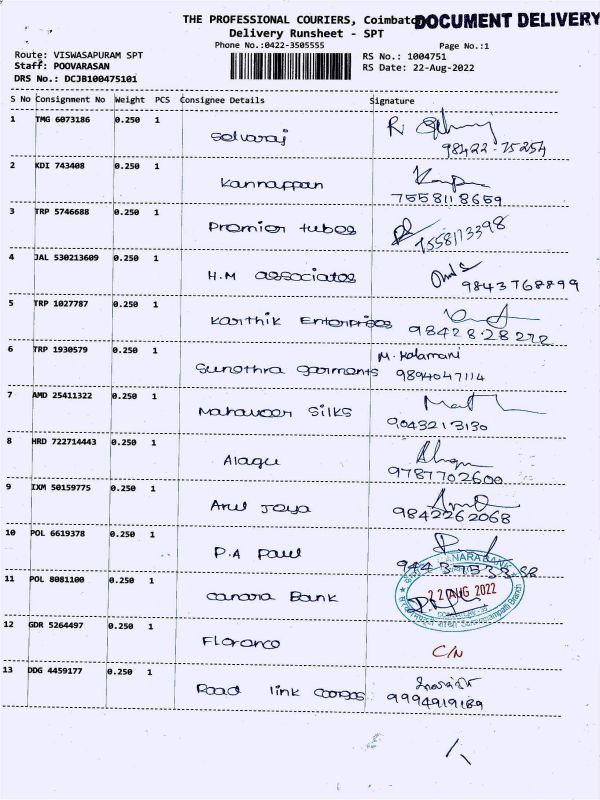 THE PROFESSIONAL COURIERS, Coimbato
DOCUMENT DELIVERY
Delivery Runsheet - SPT
Phone No.:0422-3505555 Page No.:1
Route: VISWASAPURAM SPT RS No.: 1004751
Staff: POOVARASAN RS Date: 22-Aug-2022
DRS No.: DCJB100475101
S No Consignment No Weight PCS Consignee Details Signature
1 TMG 6073186 0.250 1
Selvaraj
98422-75254
2 KDI 743408 0.250 1
Kannappan
7558118659
3 TRP 5746688 0.250 1
Premier tubes 7558113398
4 JAL 530213609 0.250 1
H.M associates 9843768899
5 TRP 1027787 0.250 1
Karthik Enterprises 9842828272
6 TRP 1930579 0.250 1 M. Kalamani
Sunethra garments 9894047114
7 AMD 25411322 0.250 1
Mahaveer Silks
9043213130
8 HRD 722714443 0.250 1
Alagu
9787702600
9 IXM 50159775 0.250 1
Arul Jeya 9842262068
10 POL 6619378 0.250 1
P.A Paul
11 POL 8081100 0.250 1
CANARA BANK
Canara Bank 22 AUG 2022
12 GDR 5264497 0.250 1
Florance C/N
13 DDG 4459177 0.250 1
Road link cargos 9994919189